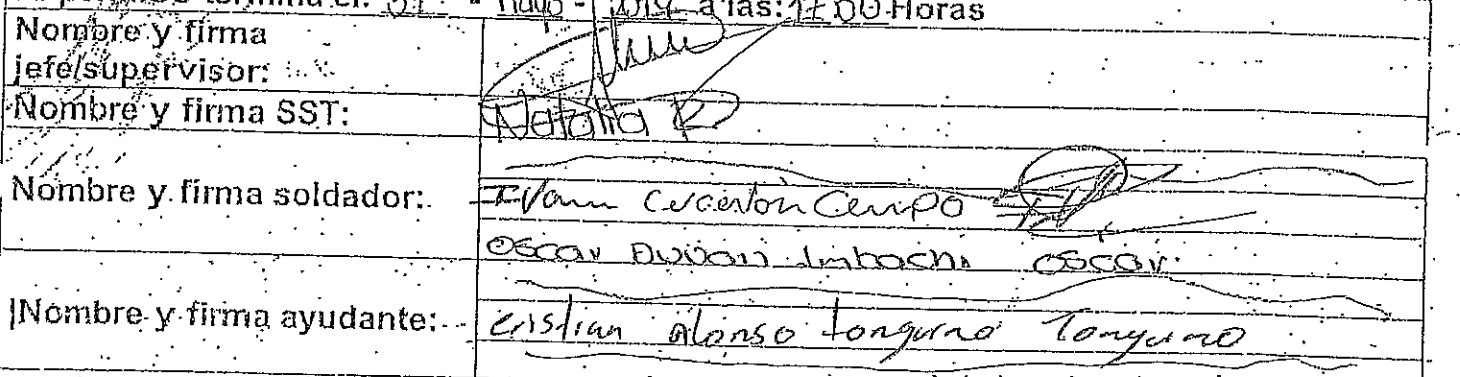 termina el: 07 - Mayo - a las: 17:00 Horas
Nombre y firma
jefe/supervisor:
Nombre y firma SST: Natalia R
Nombre y firma soldador: Ivan Campo
Oscar Duvan Imbachi Oscar
Nombre y firma ayudante: Cristian Alonso Tonguino Tonguino